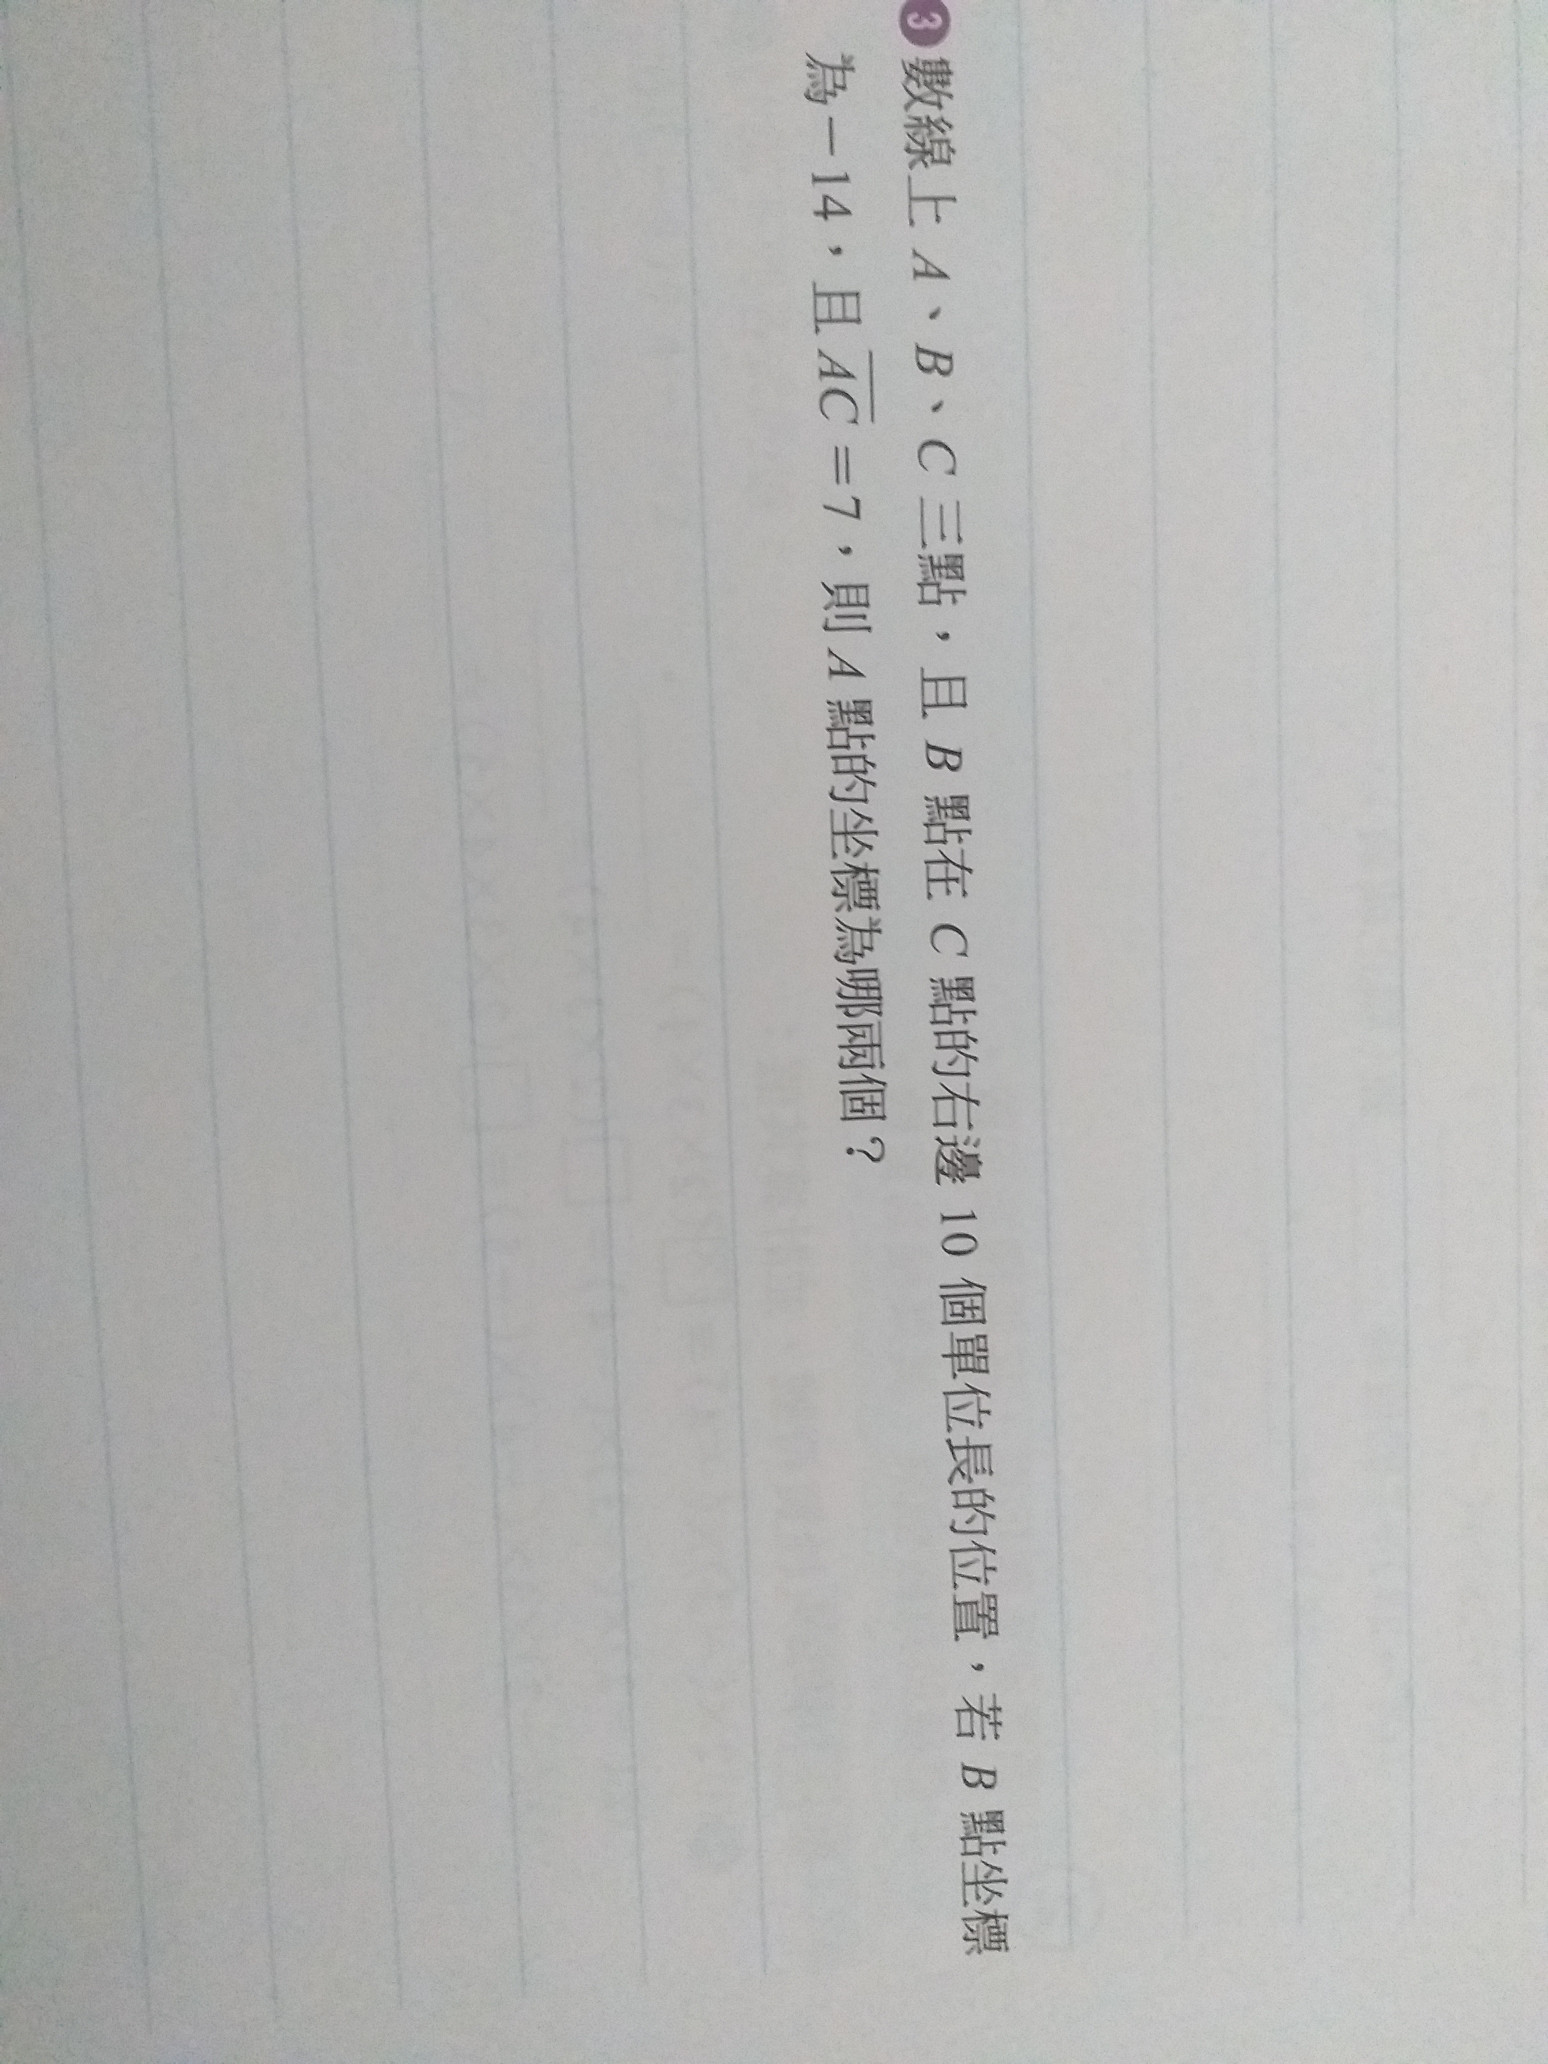 3 數線上 A、B、C 三點，且 B 點在 C 點的右邊 10 個單位長的位置，若 B 點坐標
為－14，且 AC＝7，則 A 點的坐標為哪兩個？